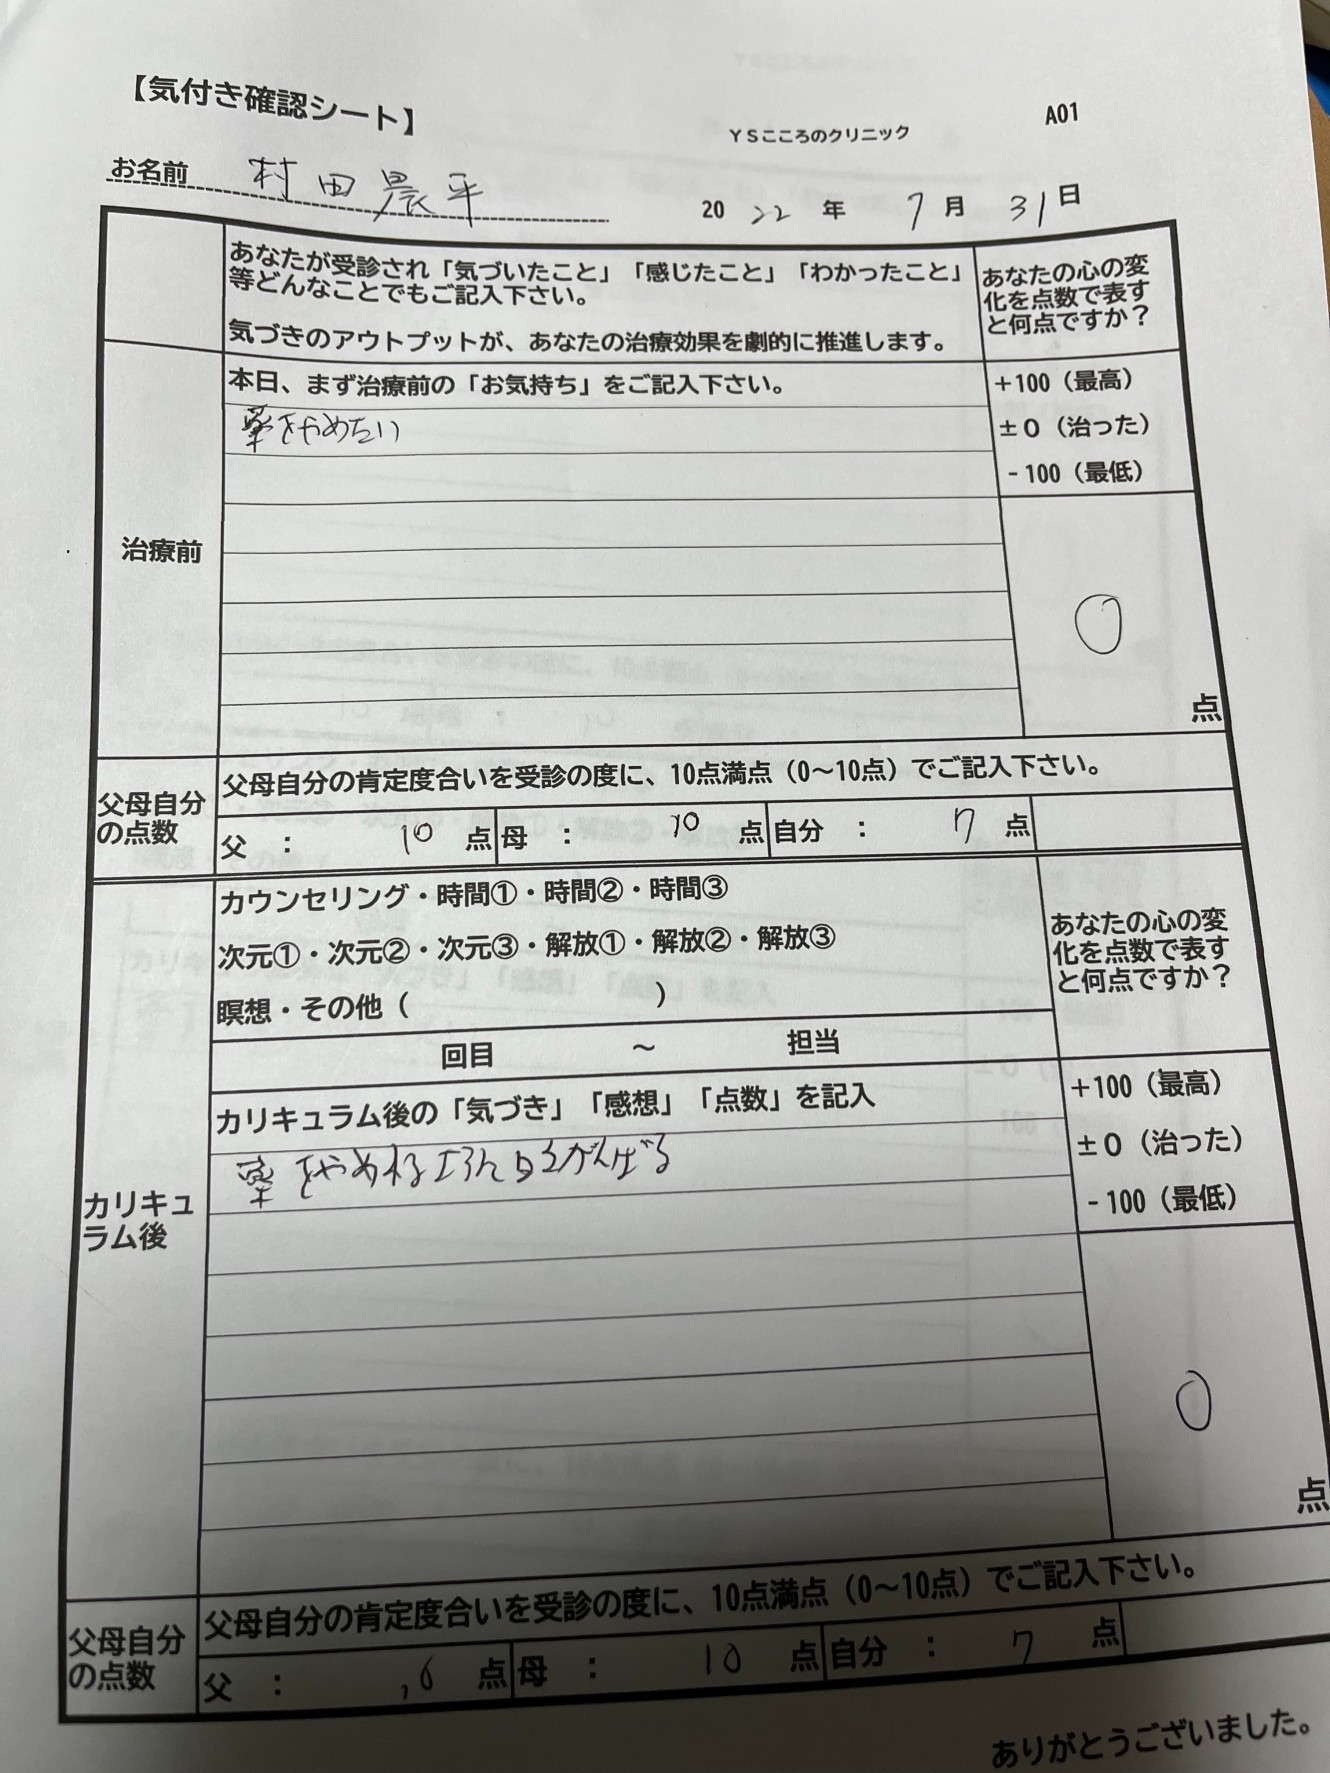 【気付き確認シート】
YSこころのクリニック
A01
お名前 村田晨平
2022年 7月 31日
あなたが受診され「気づいたこと」「感じたこと」「わかったこと」
等どんなことでもご記入下さい。
気づきのアウトプットが、あなたの治療効果を劇的に推進します。
あなたの心の変
化を点数で表す
と何点ですか？
治療前
本日、まず治療前の「お気持ち」をご記入下さい。
薬をやめたい
+100（最高）
±0（治った）
-100（最低）
0
点
父母自分
の点数
父母自分の肯定度合いを受診の度に、10点満点（0～10点）でご記入下さい。
父 ： 10 点 母 ： 10 点 自分 ： 7 点
カリキュ
ラム後
カウンセリング・時間①・時間②・時間③
次元①・次元②・次元③・解放①・解放②・解放③
瞑想・その他（ ）
回目 ～ 担当
あなたの心の変
化を点数で表す
と何点ですか？
カリキュラム後の「気づき」「感想」「点数」を記入
薬をやめれるように がんばる
+100（最高）
±0（治った）
-100（最低）
0
点
父母自分
の点数
父母自分の肯定度合いを受診の度に、10点満点（0～10点）でご記入下さい。
父 ： 点 母 ： 10 点 自分 ： 7 点
ありがとうございました。